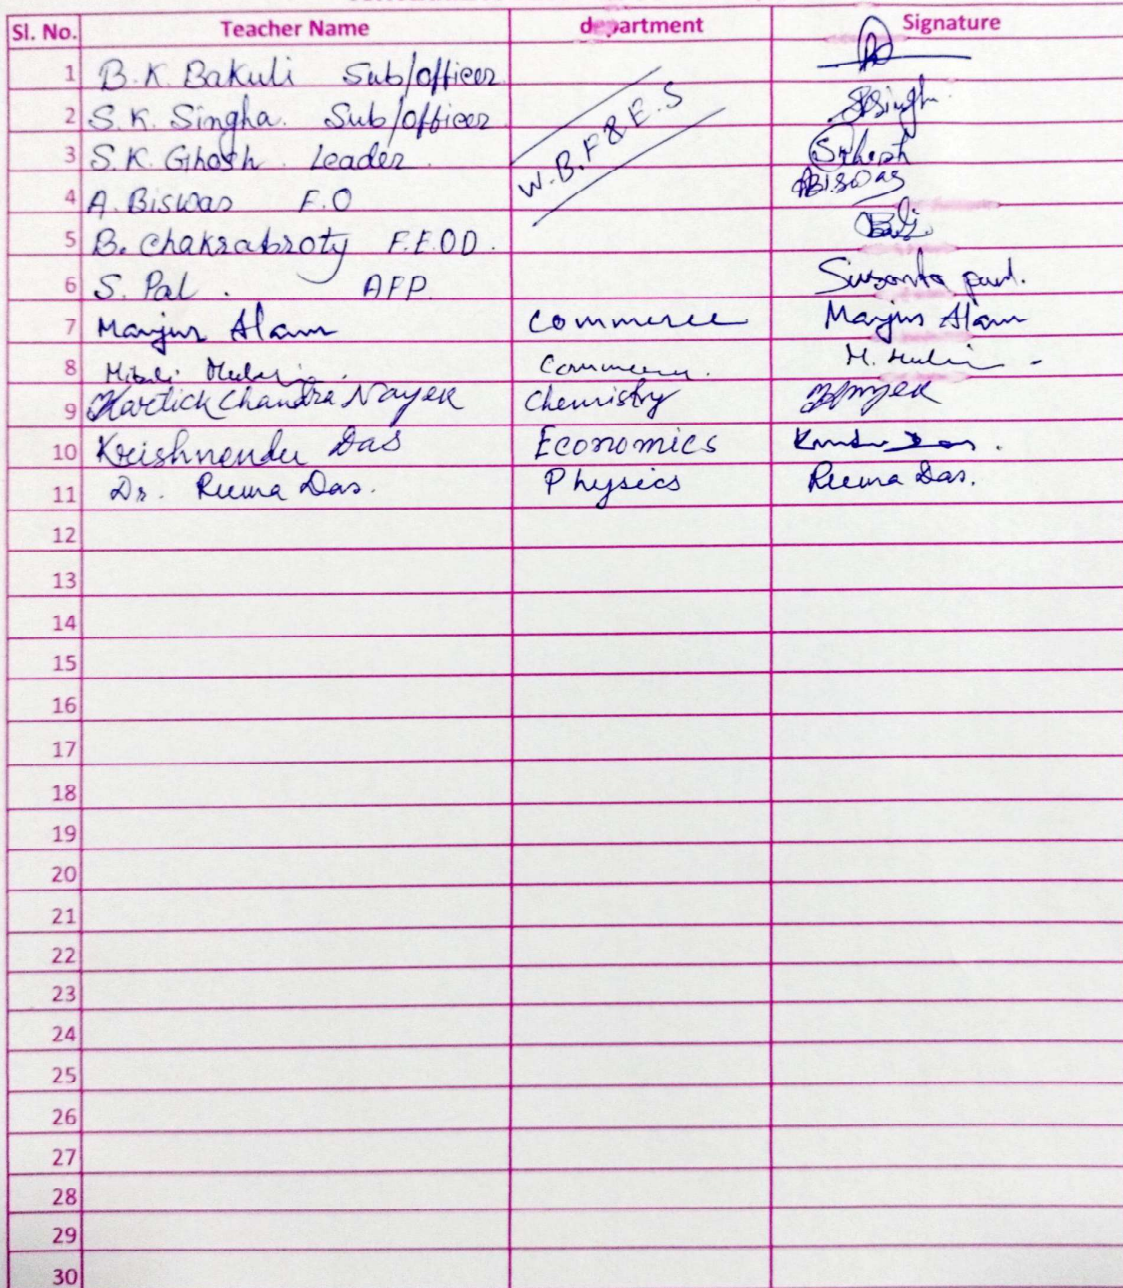 Sl. No. Teacher Name department Signature
1 B. K. Bakuli Sub/officer
2 S. K. Singha. Sub/officer SSingh
W.B.F & E.S
3 S. K. Ghosh. Leader.
4 A. Biswas F.O ABiswas
5 B. Chakrabroty F.E.O.D.
6 S. Pal. AFP Susanta paul.
7 Manjur Alam Commerce Manjur Alam
8 Commerce.
9 Kartick Chandra Nayek Chemistry
10 Krishnendu Das Economics
11 Dr. Reema Das. Physics Reema Das.
12
13
14
15
16
17
18
19
20
21
22
23
24
25
26
27
28
29
30